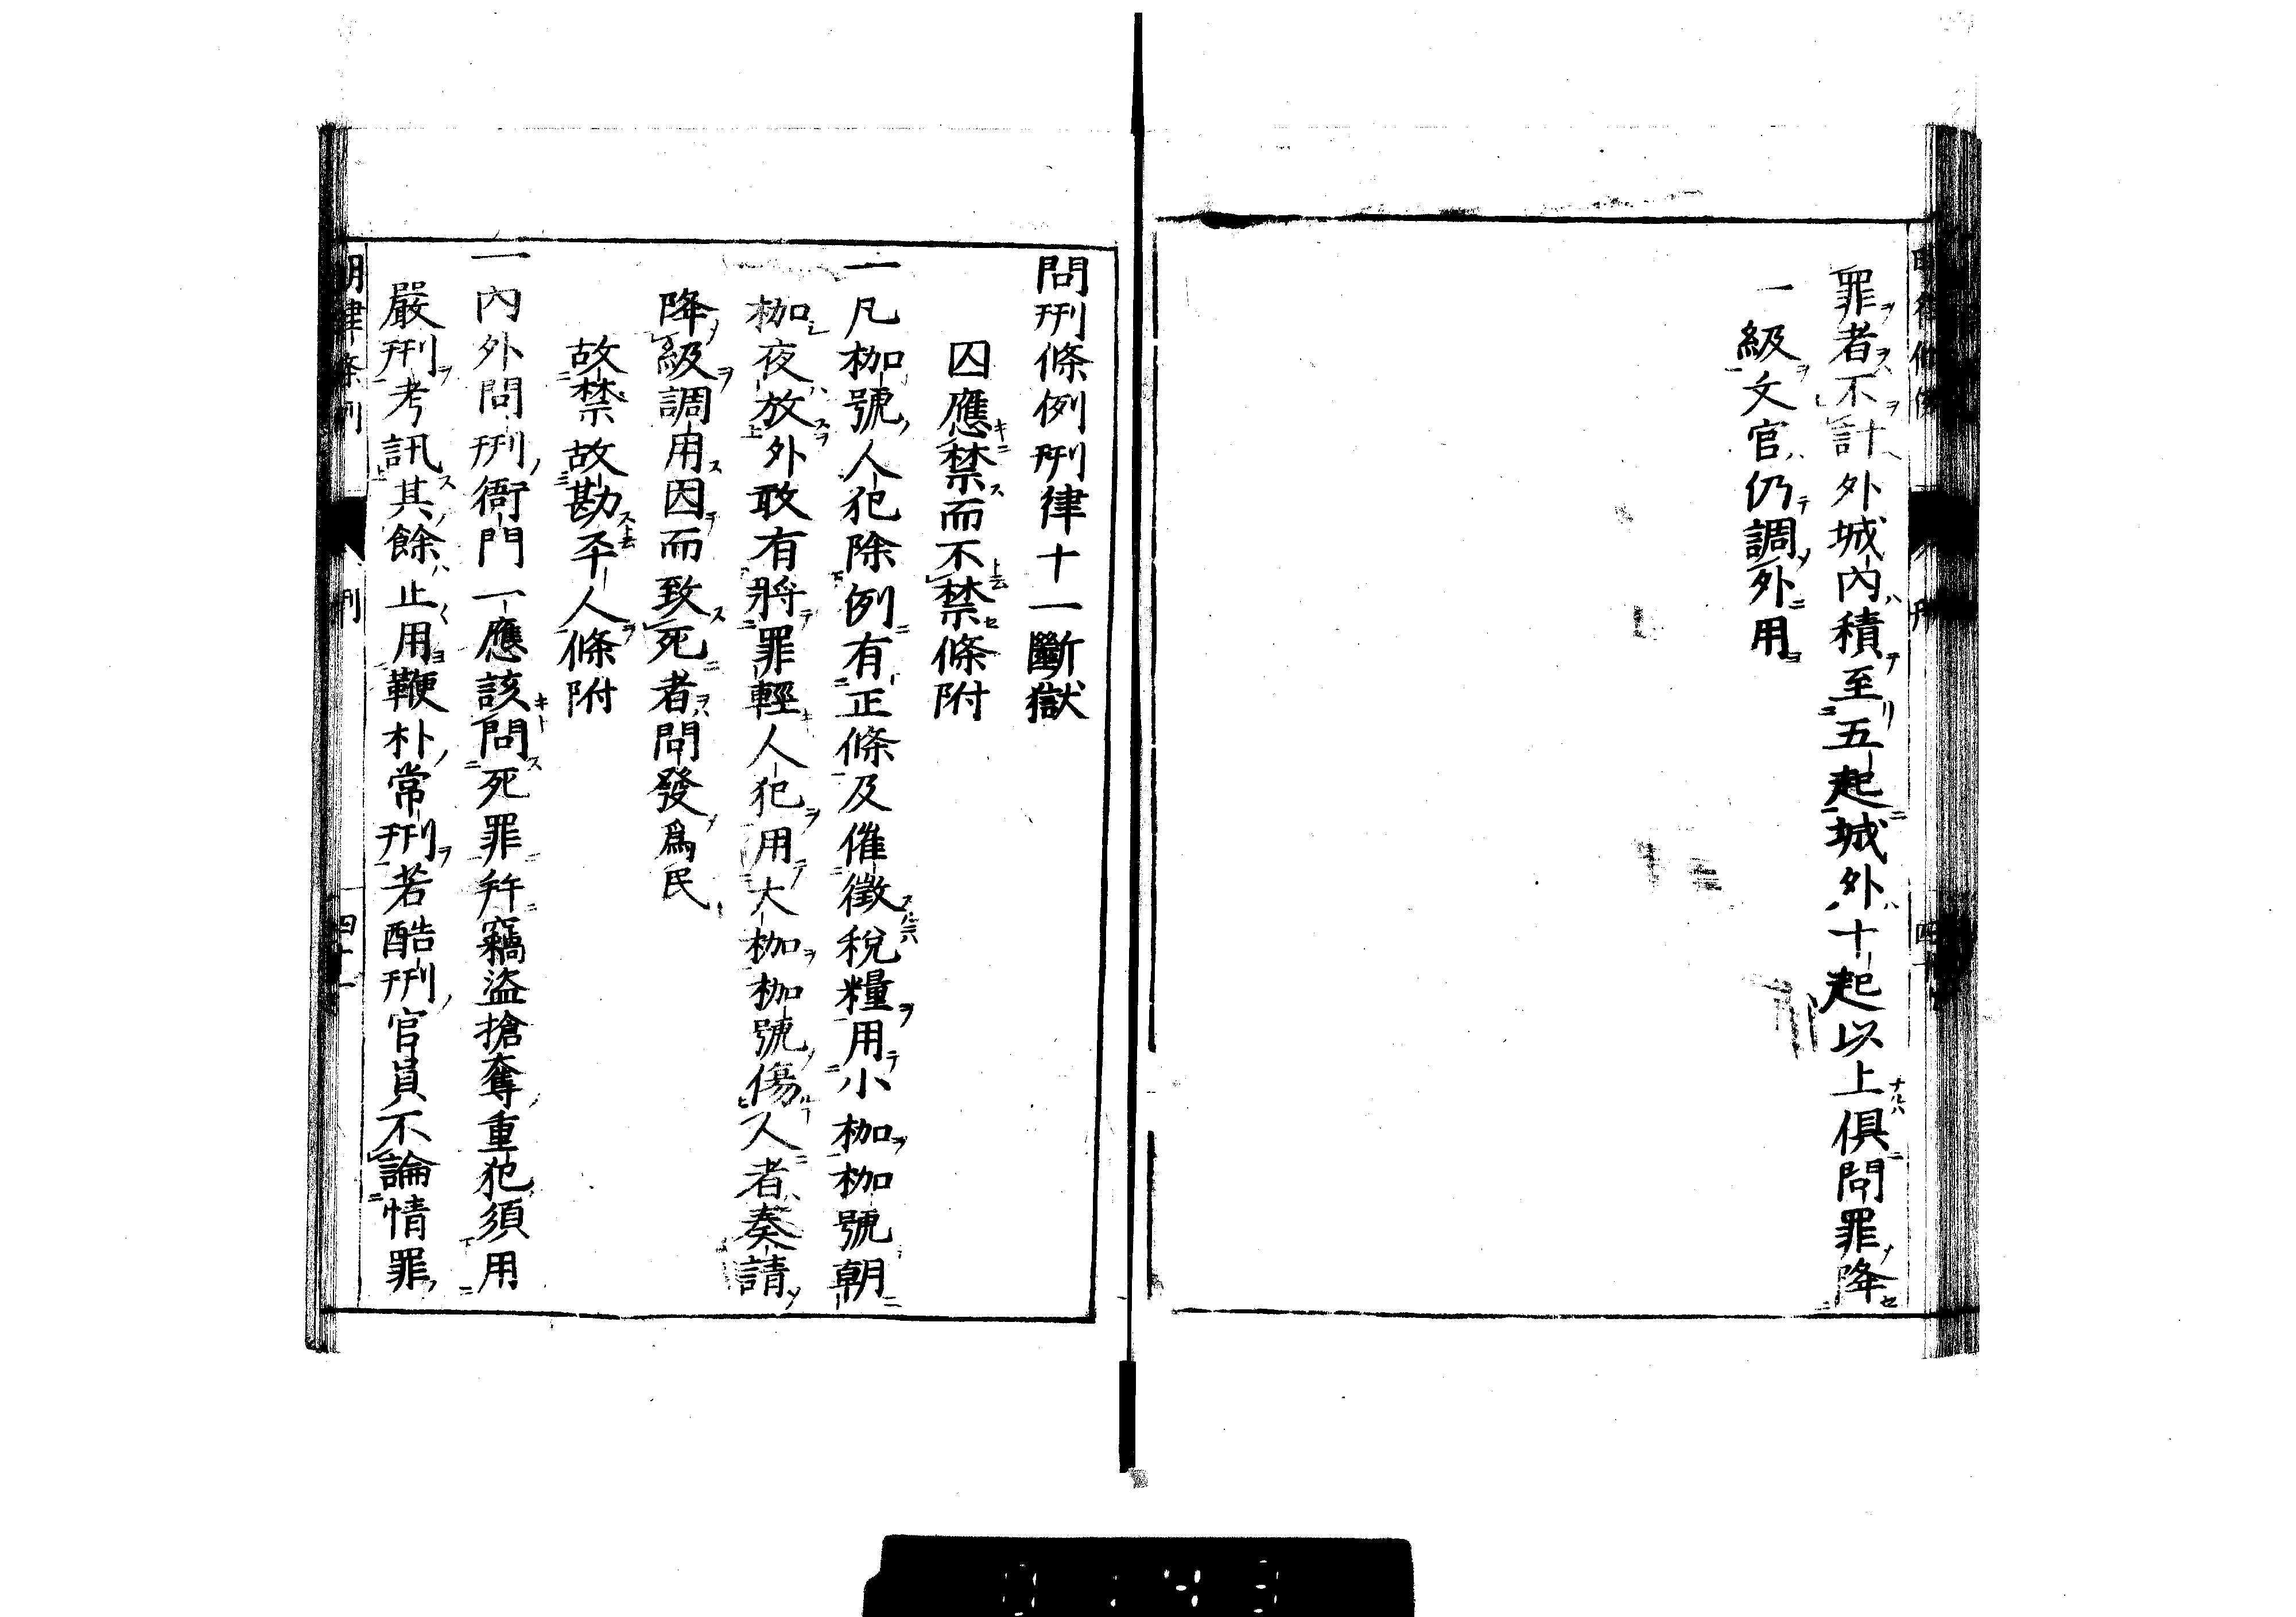 罪者不計外城內積至五起城外十起以上俱問罪降
一級文官仍調外用
問刑條例刑律十一斷獄
囚應禁而不禁條附
一凡枷號人犯除例有正條及催徵稅糧用小枷枷號朝
枷夜放外敢有將罪輕人犯用大枷枷號傷人者奏請
降級調用因而致死者問發爲民
故禁故勘平人條附
一內外問刑衙門一應該問死罪幷竊盜搶奪重犯須用
嚴刑考訊其餘止用鞭朴常刑若酷刑官員不論情罪
明律條例 刑 四十一